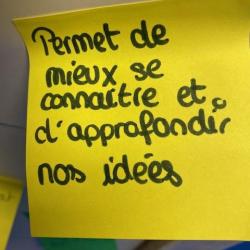 Permet de
mieux se
connaître et
d'approfondir
nos idées